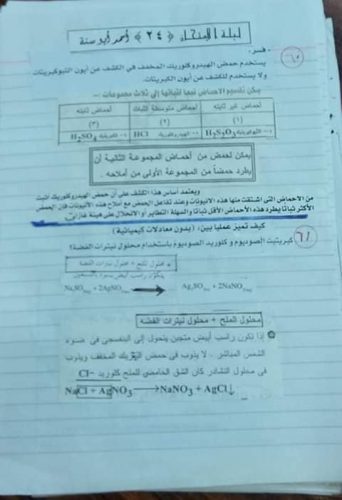 ليلة الإمتحان (٢٤) أحمد أبو سنة
- فسر.
٦٠
يستخدم حمض الهيدروكلوريك المخفف في الكشف عن أنيون
ولا يستخدم للكشف عن أنيون الكبريتات.
يمكن تقسيم الأحماض تبعا لثباتها إلى ثلاث مجموعات :-
أحماض غير ثابته أحماض متوسطة الثبات أحماض ثابته
(١) (٢) (٣)
H₂S₂O₃ HCl H₂SO₄
يمكن لحمض من أحماض المجموعة الثانية أن
يطرد حمضا من المجموعة الأولى من أملاحه.
ويعتمد أساس هذا الكشف على أن حمض الهيدروكلوريك أثبت
من الأحماض التي اشتقت منها هذه الأنيونات وعند تفاعل الحمض مع أملاح هذه الأنيونات فإن الحمض
الأكثر ثباتا يطرد هذه الأحماض الأقل ثباتا والسهلة التطاير أو الانحلال على هيئة غازات
٦١
كيف تميز عمليا بين (بدون معادلات كيميائية)
كبريتيت الصوديوم و كلوريد الصوديوم باستخدام محلول نيترات الفضة؟
محلول الملح + محلول نيترات الفضة
يتكون راسب أبيض يسود بالتسخين
+ 2AgNO₃ → + 2NaNO₃
محلول الملح + محلول نيترات الفضة
إذا تكون راسب أبيض متجبن يتحول إلى البنفسجي في ضوء
الشمس المباشر. لا يذوب في حمض النيتريك المخفف ويذوب
في محلول النشادر كان الشق الحامضي للملح كلوريد Cl⁻
NaCl + AgNO₃ → NaNO₃ + AgCl↓